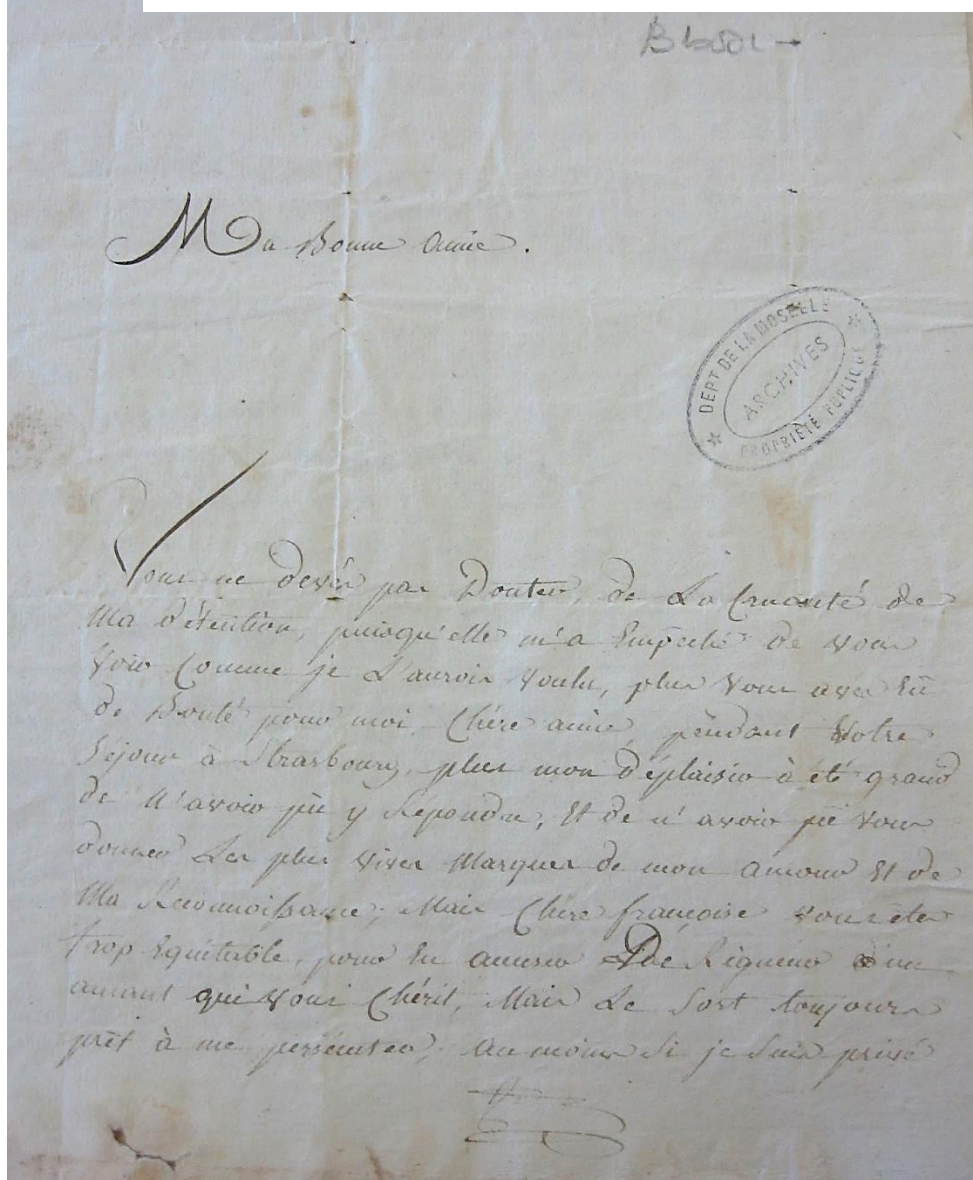 Ma Bonne Amie.
DEPT DE LA MOSELLE
ARCHIVES
PROPRIÉTÉ PUBLIQUE
Vous ne devés pas Douter, de La Cruauté de
Ma Détention, puisqu'elle m'a Empeché de vous
Voir Comme je L'aurois Voulu, plus Vous avés Eü
de Bonté pour moi Chére amie, pendant Votre
Séjour à Strasbourg, plus mon Déplaisir à été grand
de N'avoir pü y Repondre, Et de n'avoir pü Vous
donner Les plus vives Marques de mon amour Et de
Ma Reconnoissance; Mais Chére françoise vous étes
trop Equitable, pour En accuser De Rigueur d'un
amant qui vous Chérit, Mais Le Sort toujours
prêt à me perséuter, au moins Si je Suis privé